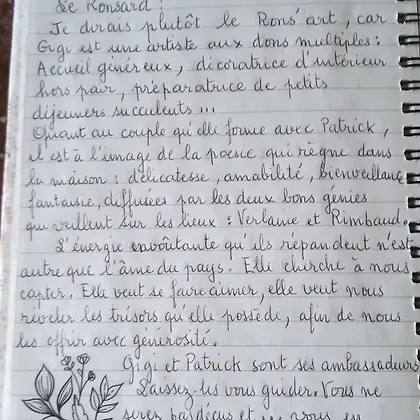 Le Ronsard !
Je dirais plutôt le Rons'art, car
Gigi est une artiste aux dons multiples :
Accueil généreux, décoratrice d'intérieur
hors pair, préparatrice de petits
déjeuners succulents ...
Quant au couple qu'elle forme avec Patrick,
il est à l'image de la poésie qui règne dans
la maison : délicatesse, amabilité, bienveillance,
fantaisie, diffusées par les deux bons génies
qui veillent sur les lieux : Verlaine et Rimbaud.
L'énergie envoûtante qu'ils répandent n'est
autre que l'âme du pays. Elle cherche à nous
capter. Elle veut se faire aimer, elle veut nous
révéler les trésors qu'elle possède, afin de nous
les offrir avec générosité.
Gigi et Patrick sont ses ambassadeurs
Laissez-les vous guider. Vous ne
serez pas déçus et ... vous